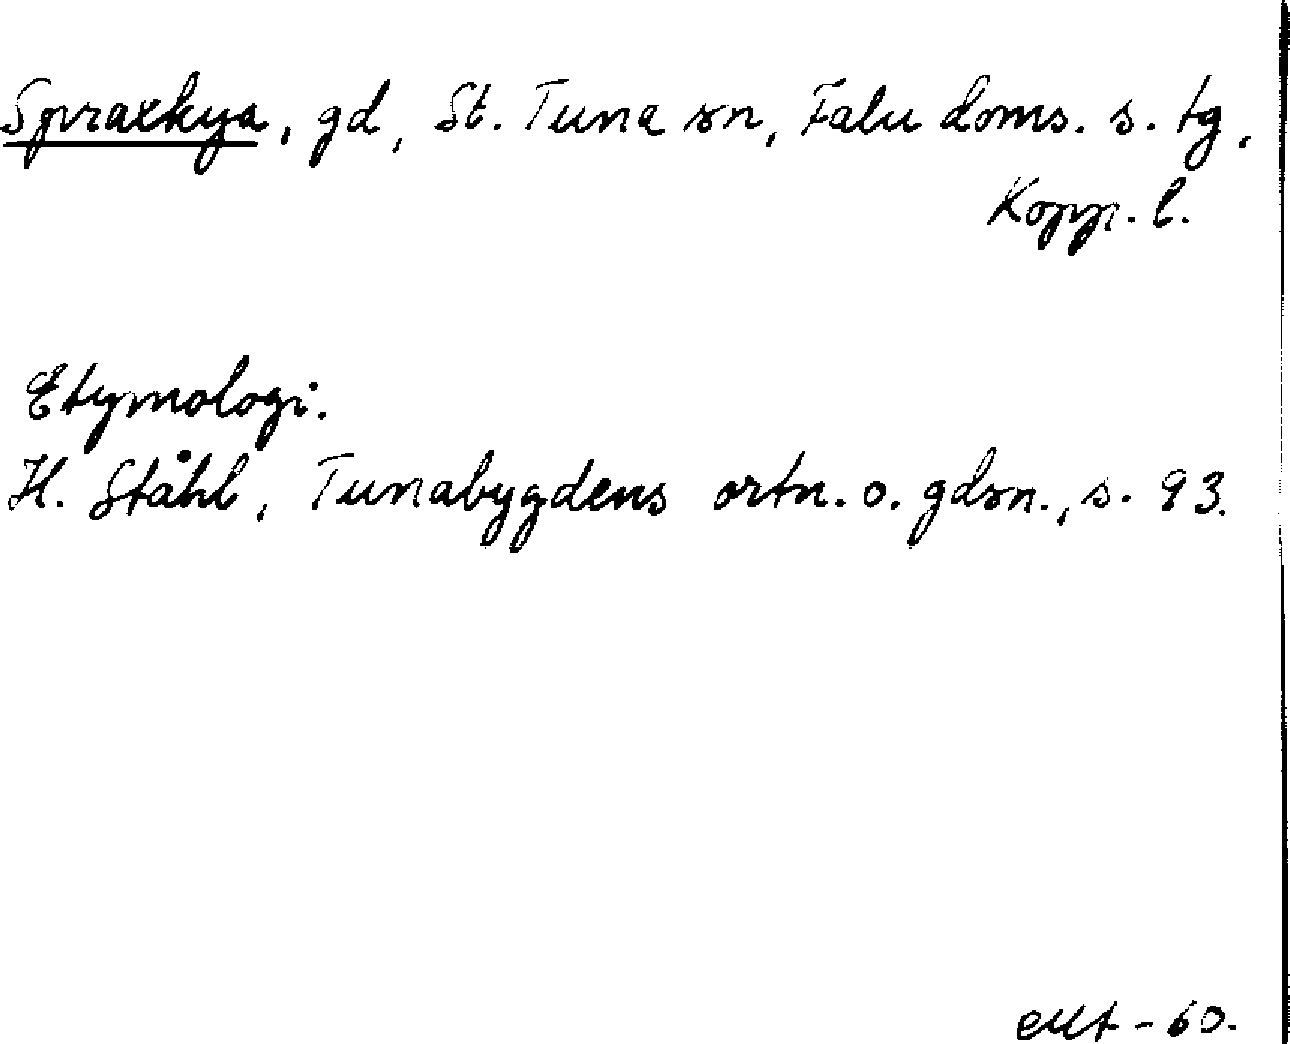 Spraxkya, gd, St. Tuna sn, Falu doms. s. tg,
Kopp. l.
Etymologi.
H. Ståhl, Tunabygdens ortn. o. gdsn., s. 93.
-60.